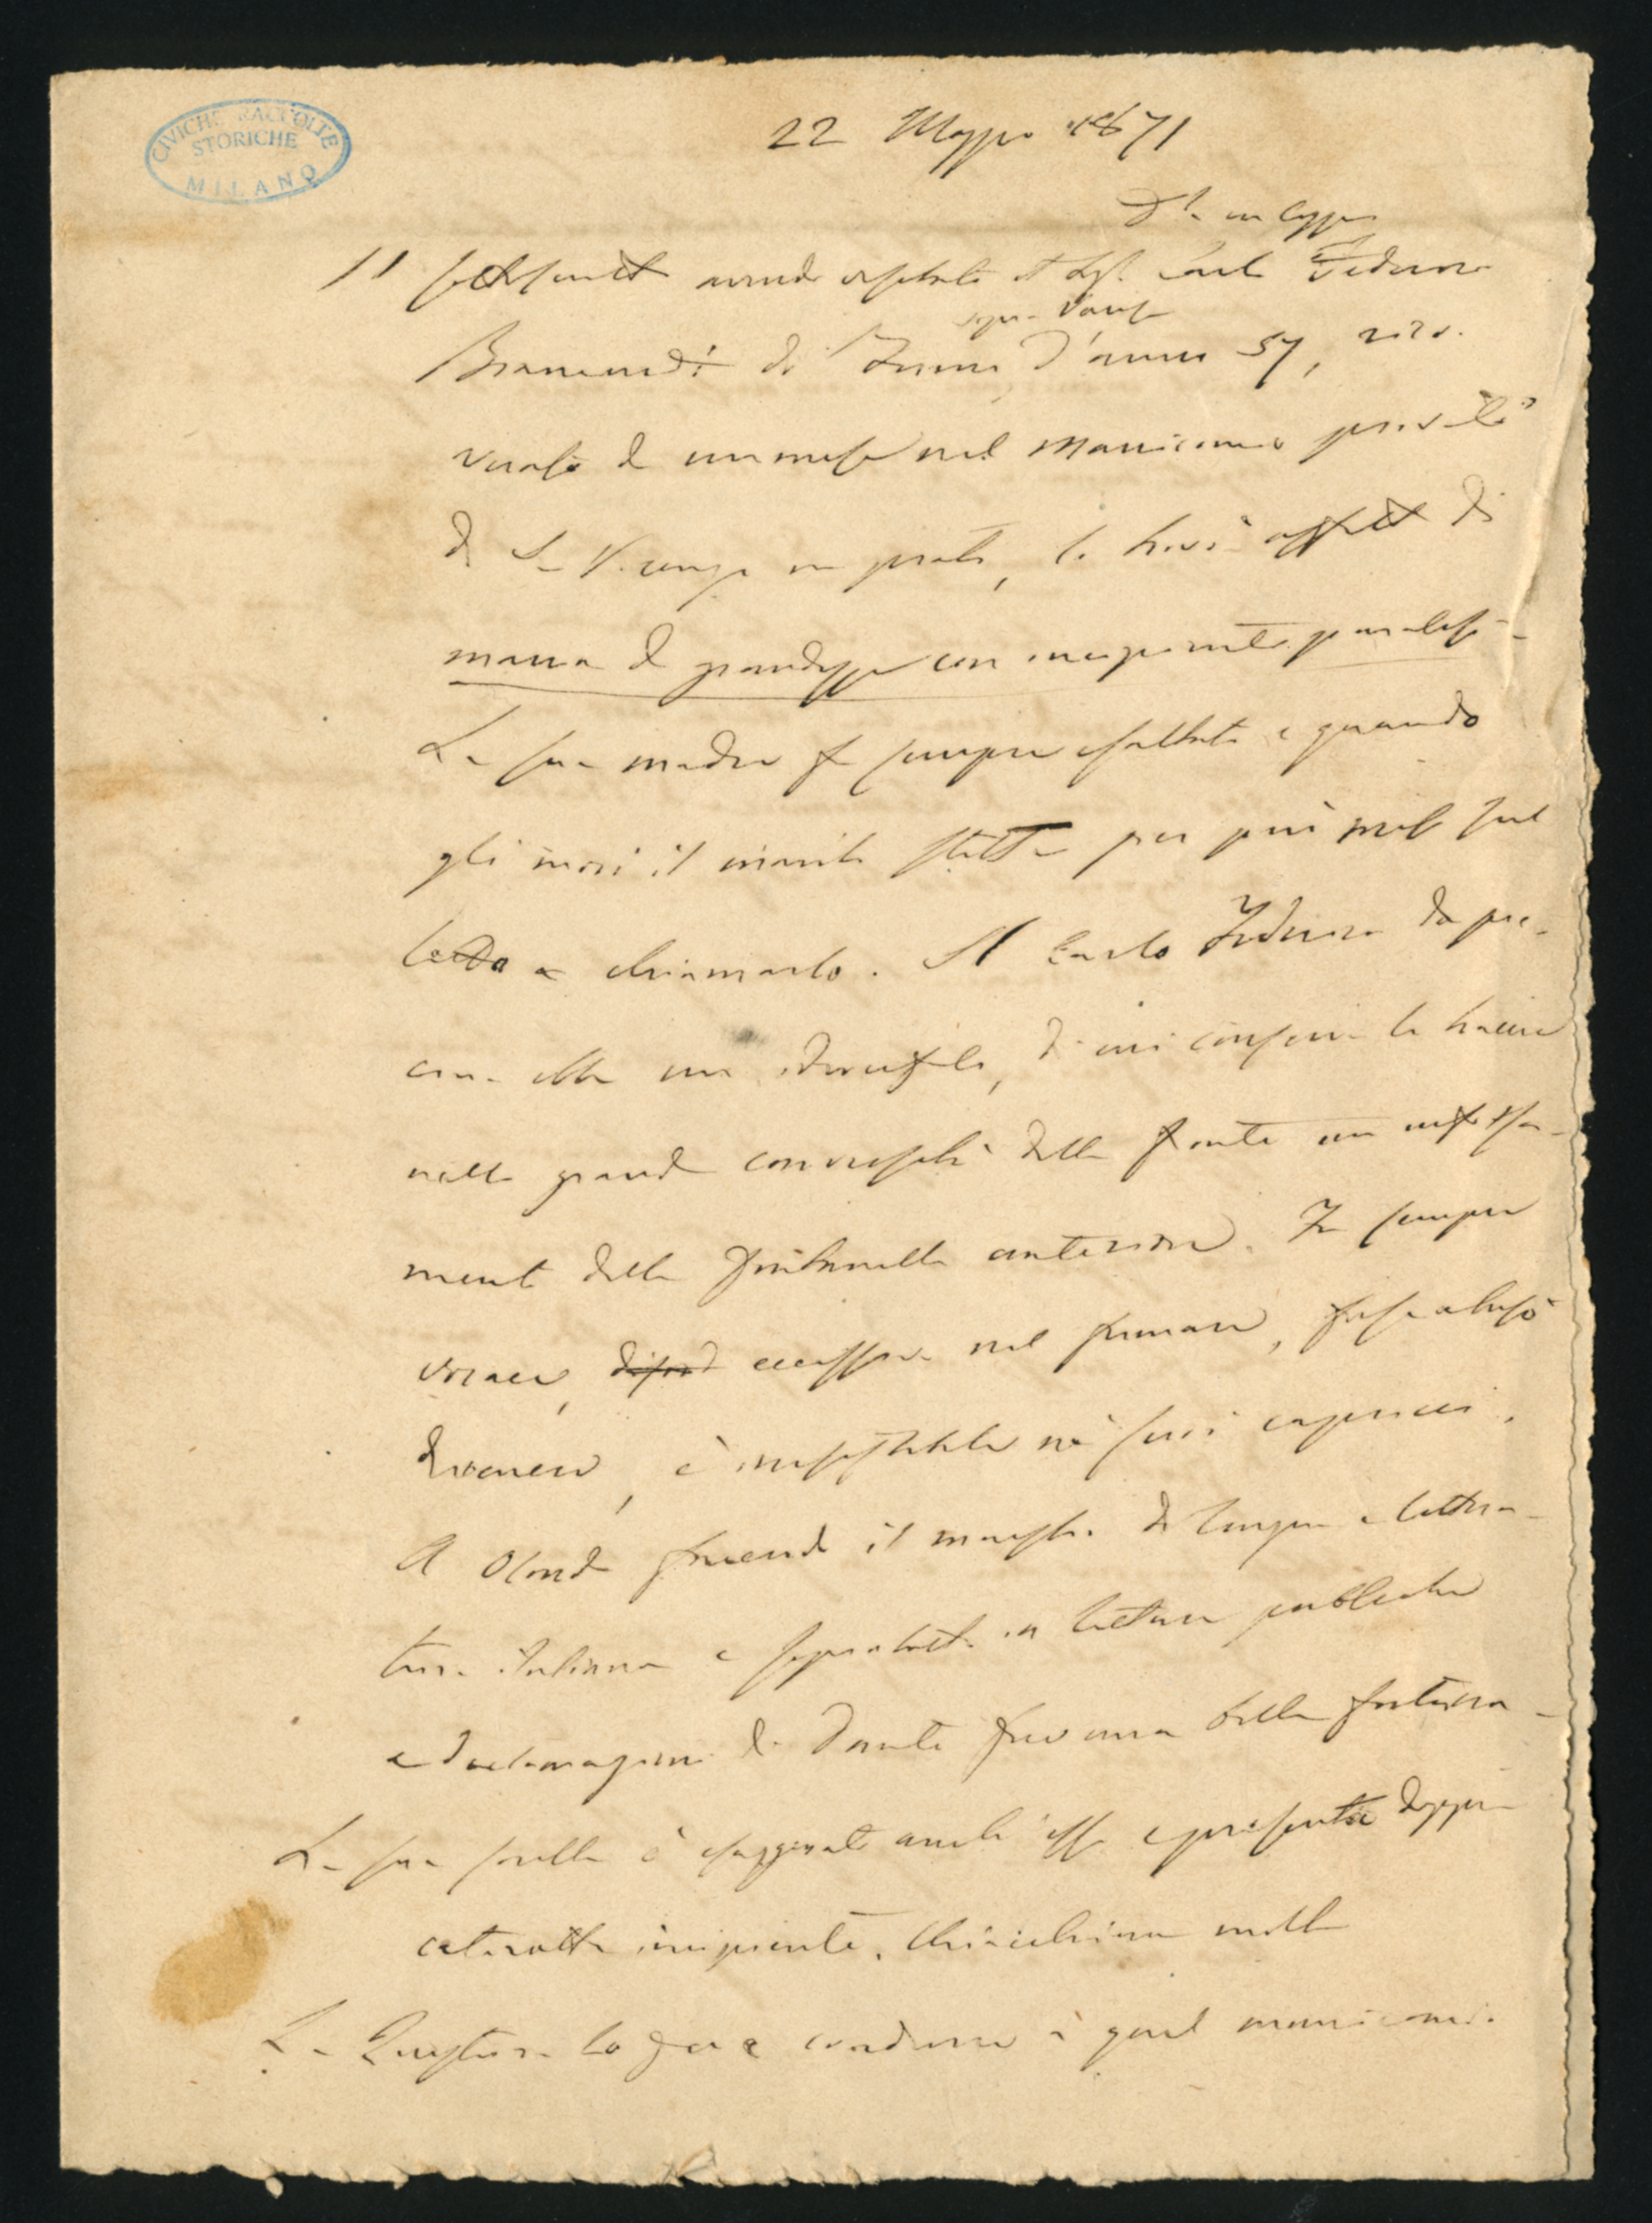 CIVICHE RACCOLTE
STORICHE
MILANO
22 Maggio 1871
Il sottoscritto avendo visitato il Carlo Federico
sopra Varese
di d'anni 57, rico-
verato da un mese nel Manicomio privato
di S. Vicenzo in prato, lo trovò affetto di
mania di grandezza con incipiente paralisi -
La sua madre fu sempre esaltata e quando
gli morì il marito stette per più mesi sul
letto a chiamarlo. Il Carlo Federico da pic-
cino ebbe un idrocefalo, di cui conserva le traccie
nella grande convessità della fronte
mento della fontanella anteriore. Fu sempre
vorace, eccessivo nel fumare, forse abusò
di venere, è ne' suoi capricci.
A facendo il maestro di lingua e lettera-
tura italiana e soprattutto in letture pubbliche
e declamazioni di Dante fece una bella fortuna -
La sua sorella è esaggerata anch'essa e presenta doppia
cateratta incipiente. molto
La Questura lo fece condurre a quel manicomio.